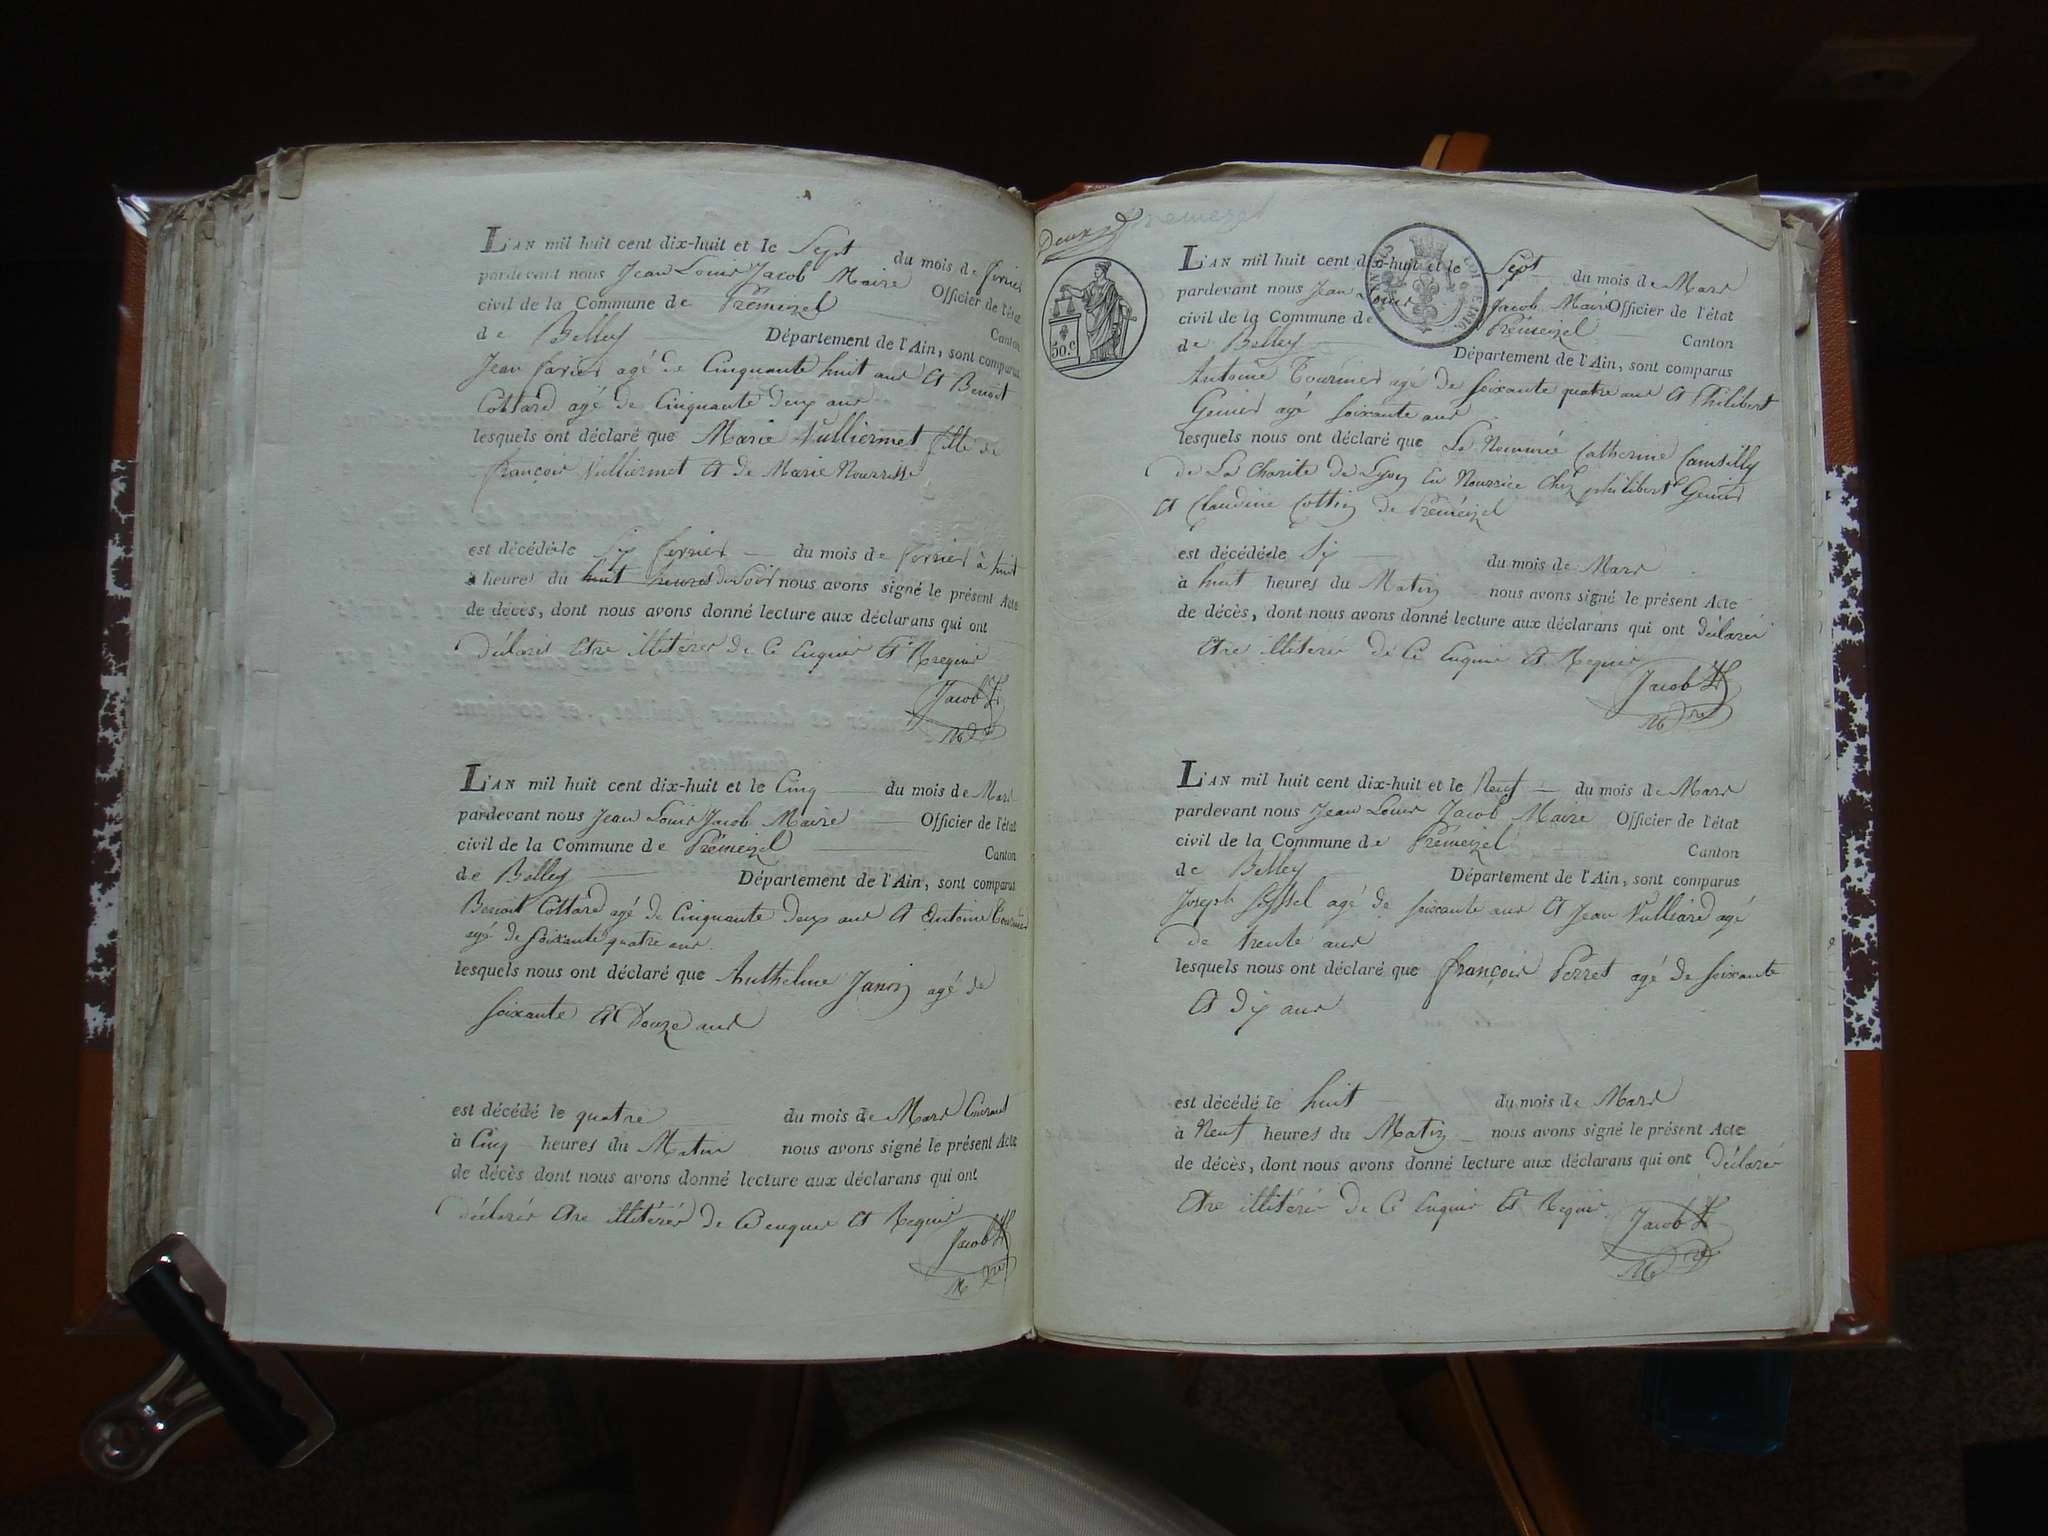 L'AN mil huit cent dix-huit et le Sept du mois de fevrier
pardevant nous Jean Louis Jacob Maire Officier de l'état
civil de la Commune de Prémeizel Canton
de Belley Département de l'Ain, sont comparus
Jean agé de Cinquante huit ans et Benoit
Cottard agé de Cinquante deux ans
lesquels ont déclaré que Marie Vulliermet fille de
françois Vulliermet et de Marie
est décédé le Six fevrier du mois de fevrier à huit
heures du huit heures du Soir nous avons signé le présent Acte
de décès, dont nous avons donné lecture aux déclarans qui ont
déclarés Etre illiterer de Ce Enquir et Requir
Jacob
Mre
L'AN mil huit cent dix-huit et le Cinq du mois de Mars
pardevant nous Jean Louis Jacob Maire Officier de l'état
civil de la Commune de Prémeizel Canton
de Belley Département de l'Ain, sont comparus
Benoit Cottard agé de Cinquante deux ans et Antoine Tournier
agé de Soixante quatre ans
lesquels nous ont déclaré que Anthelme Janin agé de
soixante et Douze ans
est décédé le quatre du mois de Mars Courant
à Cinq heures du Matin nous avons signé le présent Acte
de décès dont nous avons donné lecture aux déclarans qui ont
déclarér Etre illitérér de Ce enquir et Requir
Jacob
Mre
Deux
Prémeizel
50.C
L'AN mil huit cent dix-huit et le Sept du mois de Mars
pardevant nous Jean Louis Jacob Maire Officier de l'état
civil de la Commune de Prémeizel Canton
de Belley Département de l'Ain, sont comparus
Antoine Tournier agé de soixante quatre ans et Philibert
Genier agé soixante ans
lesquels nous ont déclaré que La Nommé Catherine
de La Charite de Lyon En Nourrice Chez philibert Genier
et Claudine Cottin de Prémeizel
est décédé le Six du mois de Mars
à huit heures du Matin nous avons signé le présent Acte
de décès, dont nous avons donné lecture aux déclarans qui ont déclarér
Etre illiterér de Ce Enquir et Requir
Jacob
Mre
L'AN mil huit cent dix-huit et le Neuf du mois de Mars
pardevant nous Jean Louis Jacob Maire Officier de l'état
civil de la Commune de Prémeizel Canton
de Belley Département de l'Ain, sont comparus
Joseph agé de soixante ans et Jean Vulliard agé
de trente ans
lesquels nous ont déclaré que françois Perret agé de soixante
et dix ans
est décédé le huit du mois de Mars
à Neuf heures du Matin nous avons signé le présent Acte
de décès, dont nous avons donné lecture aux déclarans qui ont déclarér
Etre illitérér de Ce Enquir et Requir
Jacob
Mre